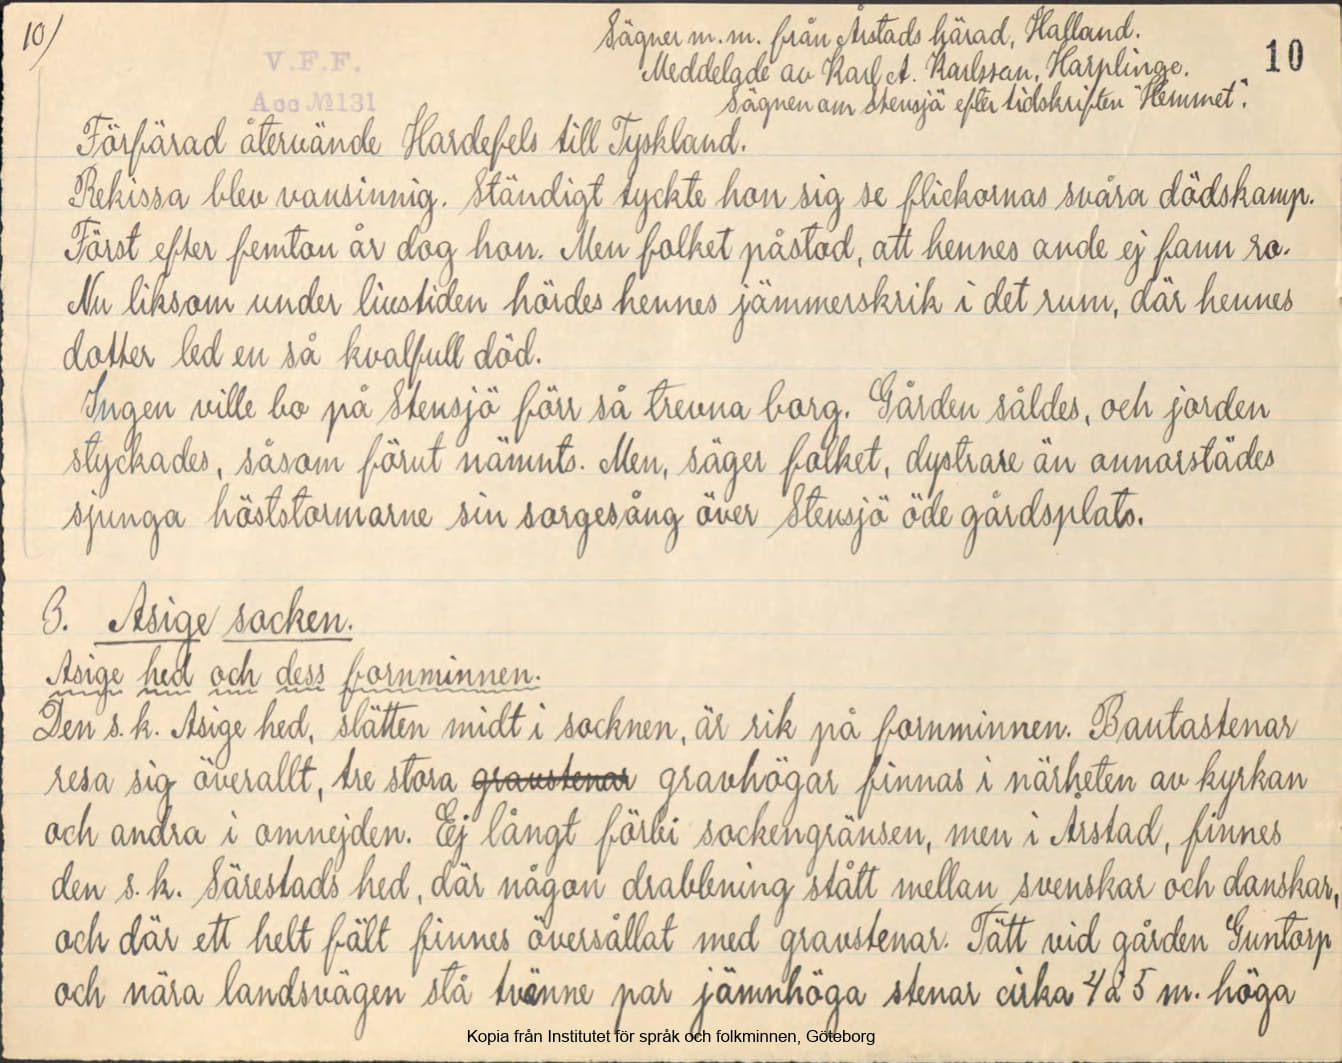 10/
Sägner m.m. från Årstads härad, Halland.
10
Meddelade av Karl A. Karlsson, Harplinge.
Sägnen om Stensjö efter tidskriften "Hemmet".
V.F.F.
Acc № 131
Förfärad återvände Hardefels till Tyskland.
Rekissa blev vansinnig. Ständigt tyckte hon sig se flickornas svåra dödskamp.
Först efter femton år dog hon. Men folket påstod, att hennes ande ej fann ro.
Nu liksom under livstiden hördes hennes jämmerskrik i det rum, där hennes
dotter led en så kvalfull död.
Ingen ville bo på Stensjö förr så trevna borg. Gården såldes, och jorden
styckades, såsom förut nämnts. Men, säger folket, dystrare än annorstädes
sjunga höststormarne sin sorgesång över Stensjö öde gårdsplats.
3. Asige socken.
Asige hed och dess fornminnen.
Den s.k. Asige hed, slätten midt i socknen, är rik på fornminnen. Bautastenar
resa sig överallt, tre stora gravstenar gravhögar finnas i närheten av kyrkan
och andra i omnejden. Ej långt förbi sockengränsen, men i Årstad, finnes
den s.k. Särestads hed, där någon drabbning stått mellan svenskar och danskar,
och där ett helt fält finnes översållat med gravstenar. Tätt vid gården Guntorp
och nära landsvägen stå tvänne par jämnhöga stenar cirka 4 à 5 m. höga
Kopia från Institutet för språk och folkminnen, Göteborg